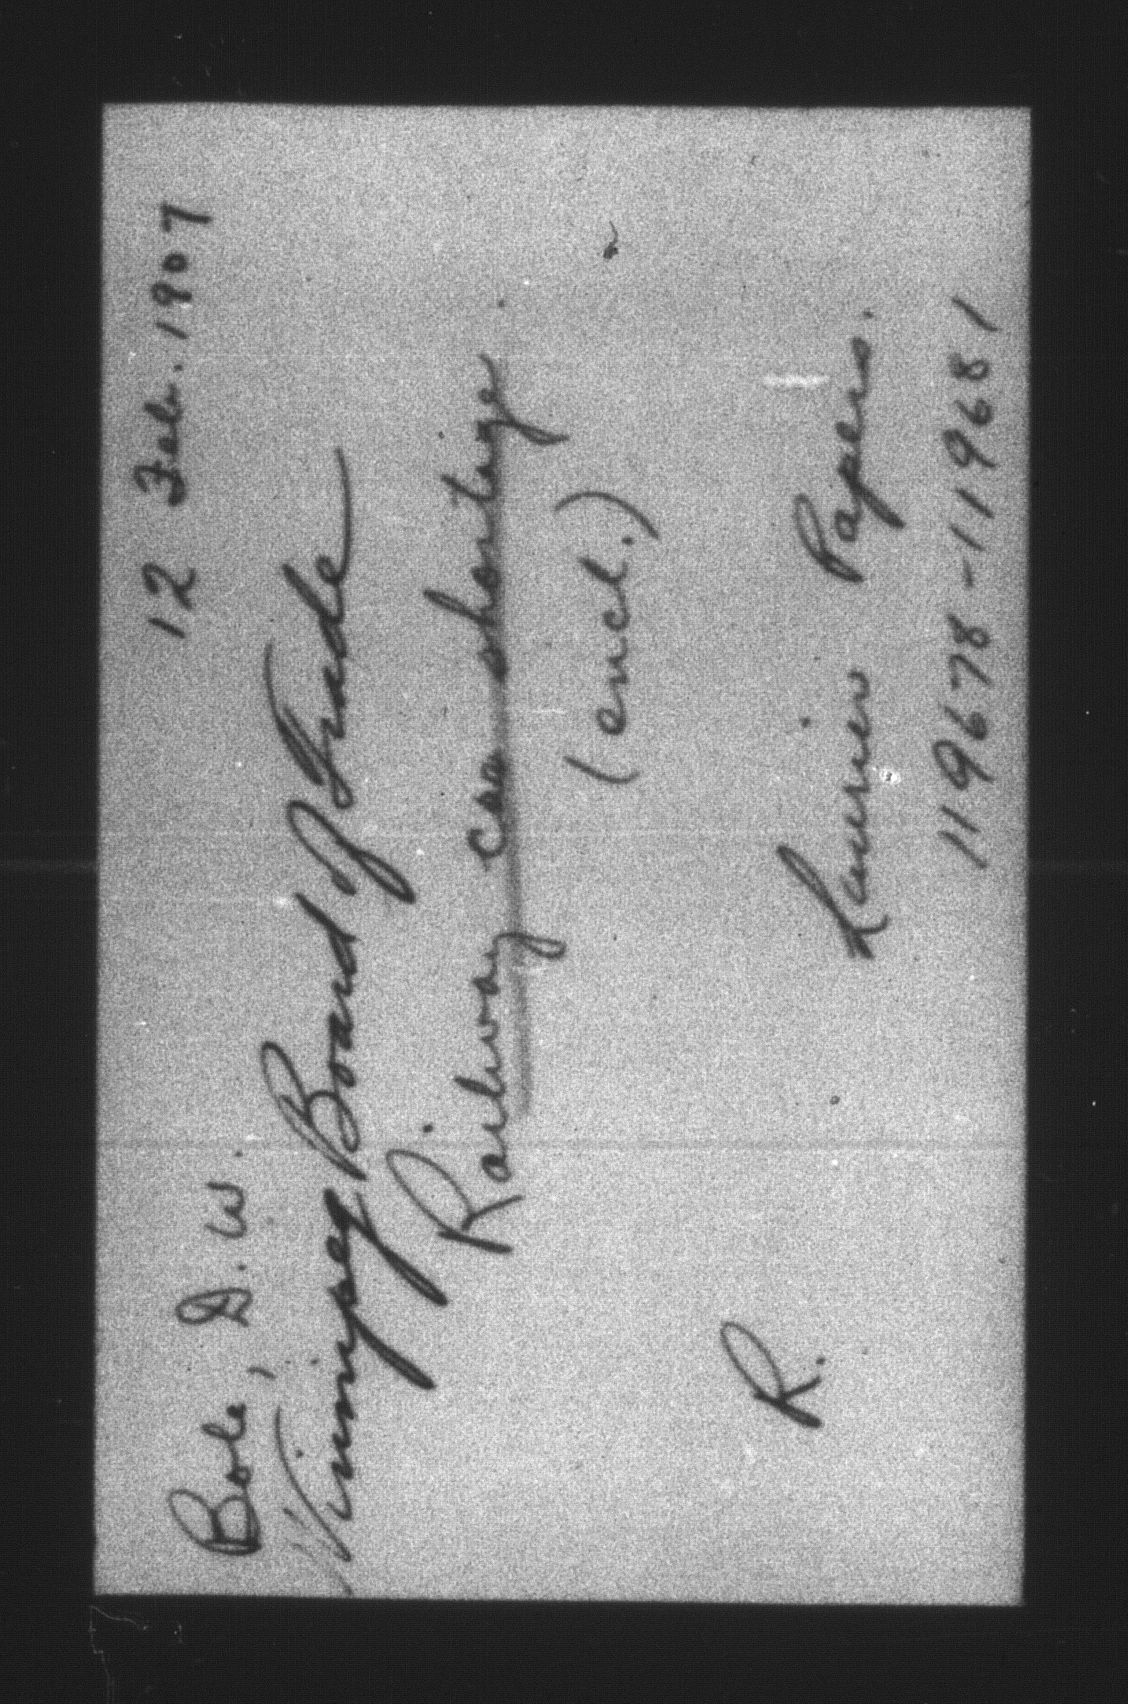 Bole, D. W. 12 Feb. 1907
Winnipeg Board of Trade
Railway car shortage.
(encl.)
R.
Laurier Papers.
119678-119681